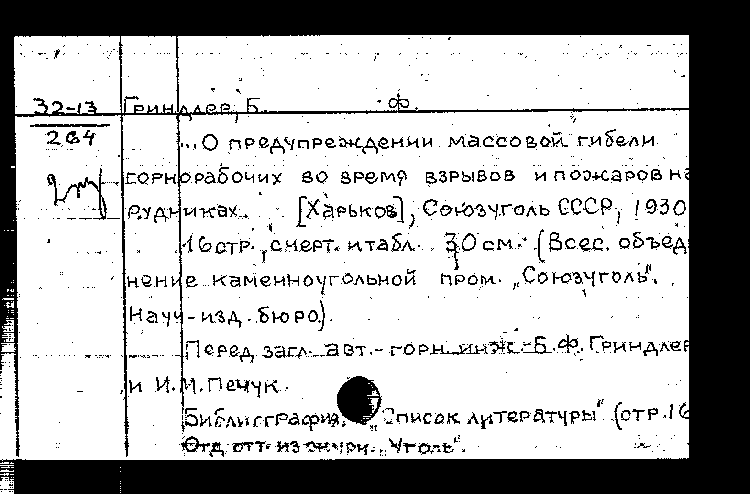 32-13 Гриндлер, Б. Ф.
264
„О предупреждении массовой гибели
горнорабочих во время взрывов и пожаров на
рудниках. [Харьков], Союзуголь СССР, 1930
16 стр., с черт. и табл. 30 см. (Всес. объеди
нение каменноугольной пром. „Союзуголь".
Науч-изд. бюро).
Перед загл. авт.-горн. инж. Б.Ф. Гриндлер
и И.М. Печук.
Библиография: „Список литературы" (стр. 16
Отд. отт. из журн. „Уголь".